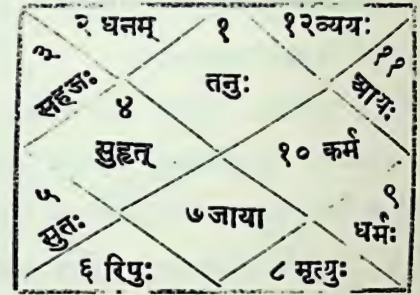 २ धनम्
१
१२व्ययः
३
सहजः
तनुः
११
आयः
४
सुहृत्
१० कर्म
५
सुतः
७ जाया
९
धर्मः
६ रिपुः
८ मृत्युः